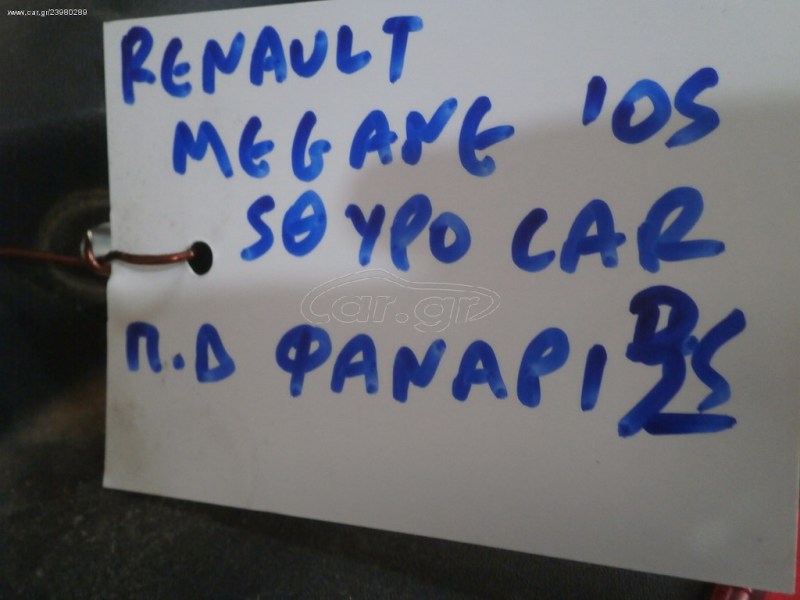 www.car.gr/23980289
RENAULT
MEGANE '05
5ΘΥΡΟ CAR
car.gr
Π.Δ ΦΑΝΑΡΙ